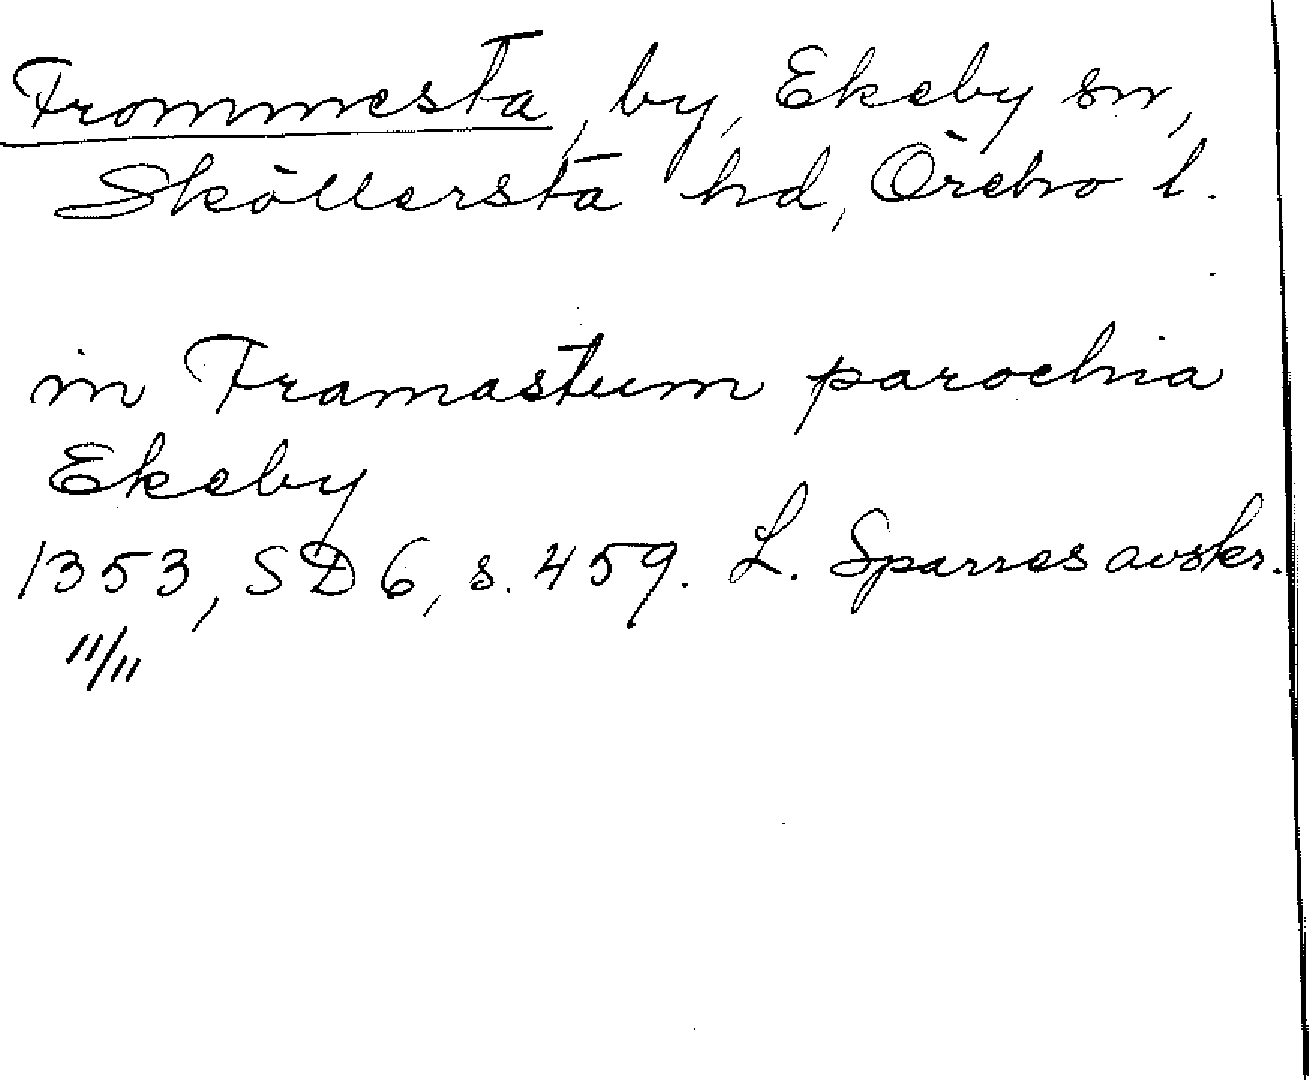 Frommesta, by, Ekeby sn,
Sköllersta hd, Örebro l.
in Framastum parochia
Ekeby
1353, SD 6, s. 459. L. Sparres avskr.
11/11